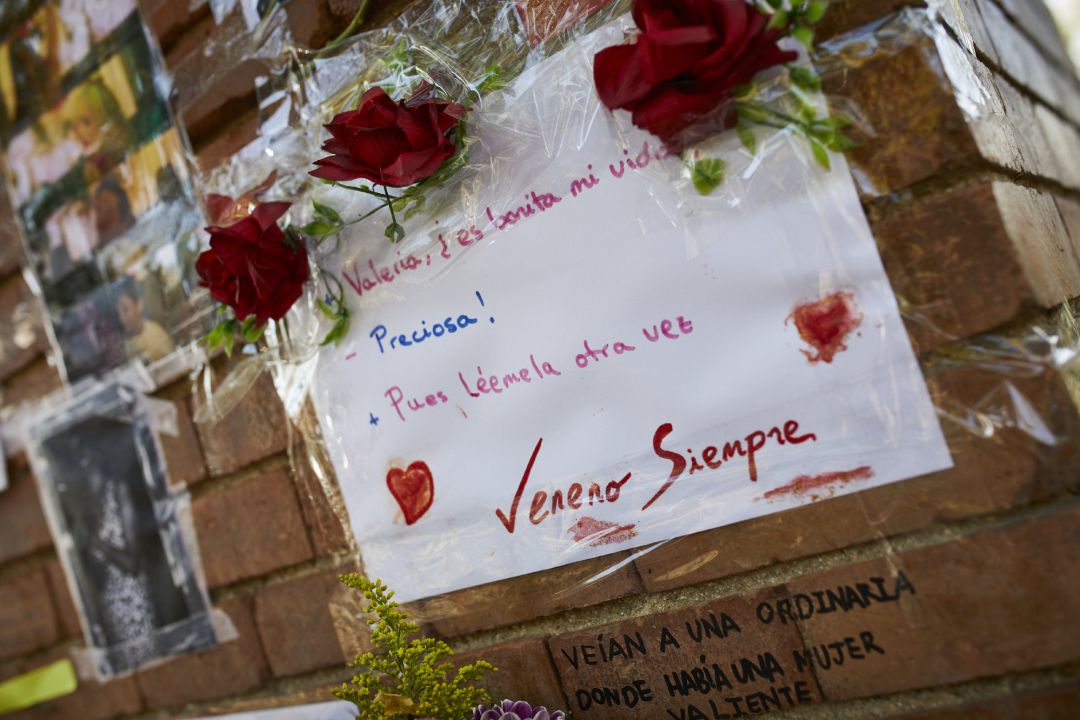 + Valeria, ¿es bonita mi vida
- Preciosa!
+ Pues Léemela otra vez
Veneno Siempre
VEÍAN A UNA ORDINARIA
DONDE HABÍA UNA MUJER
VALIENTE